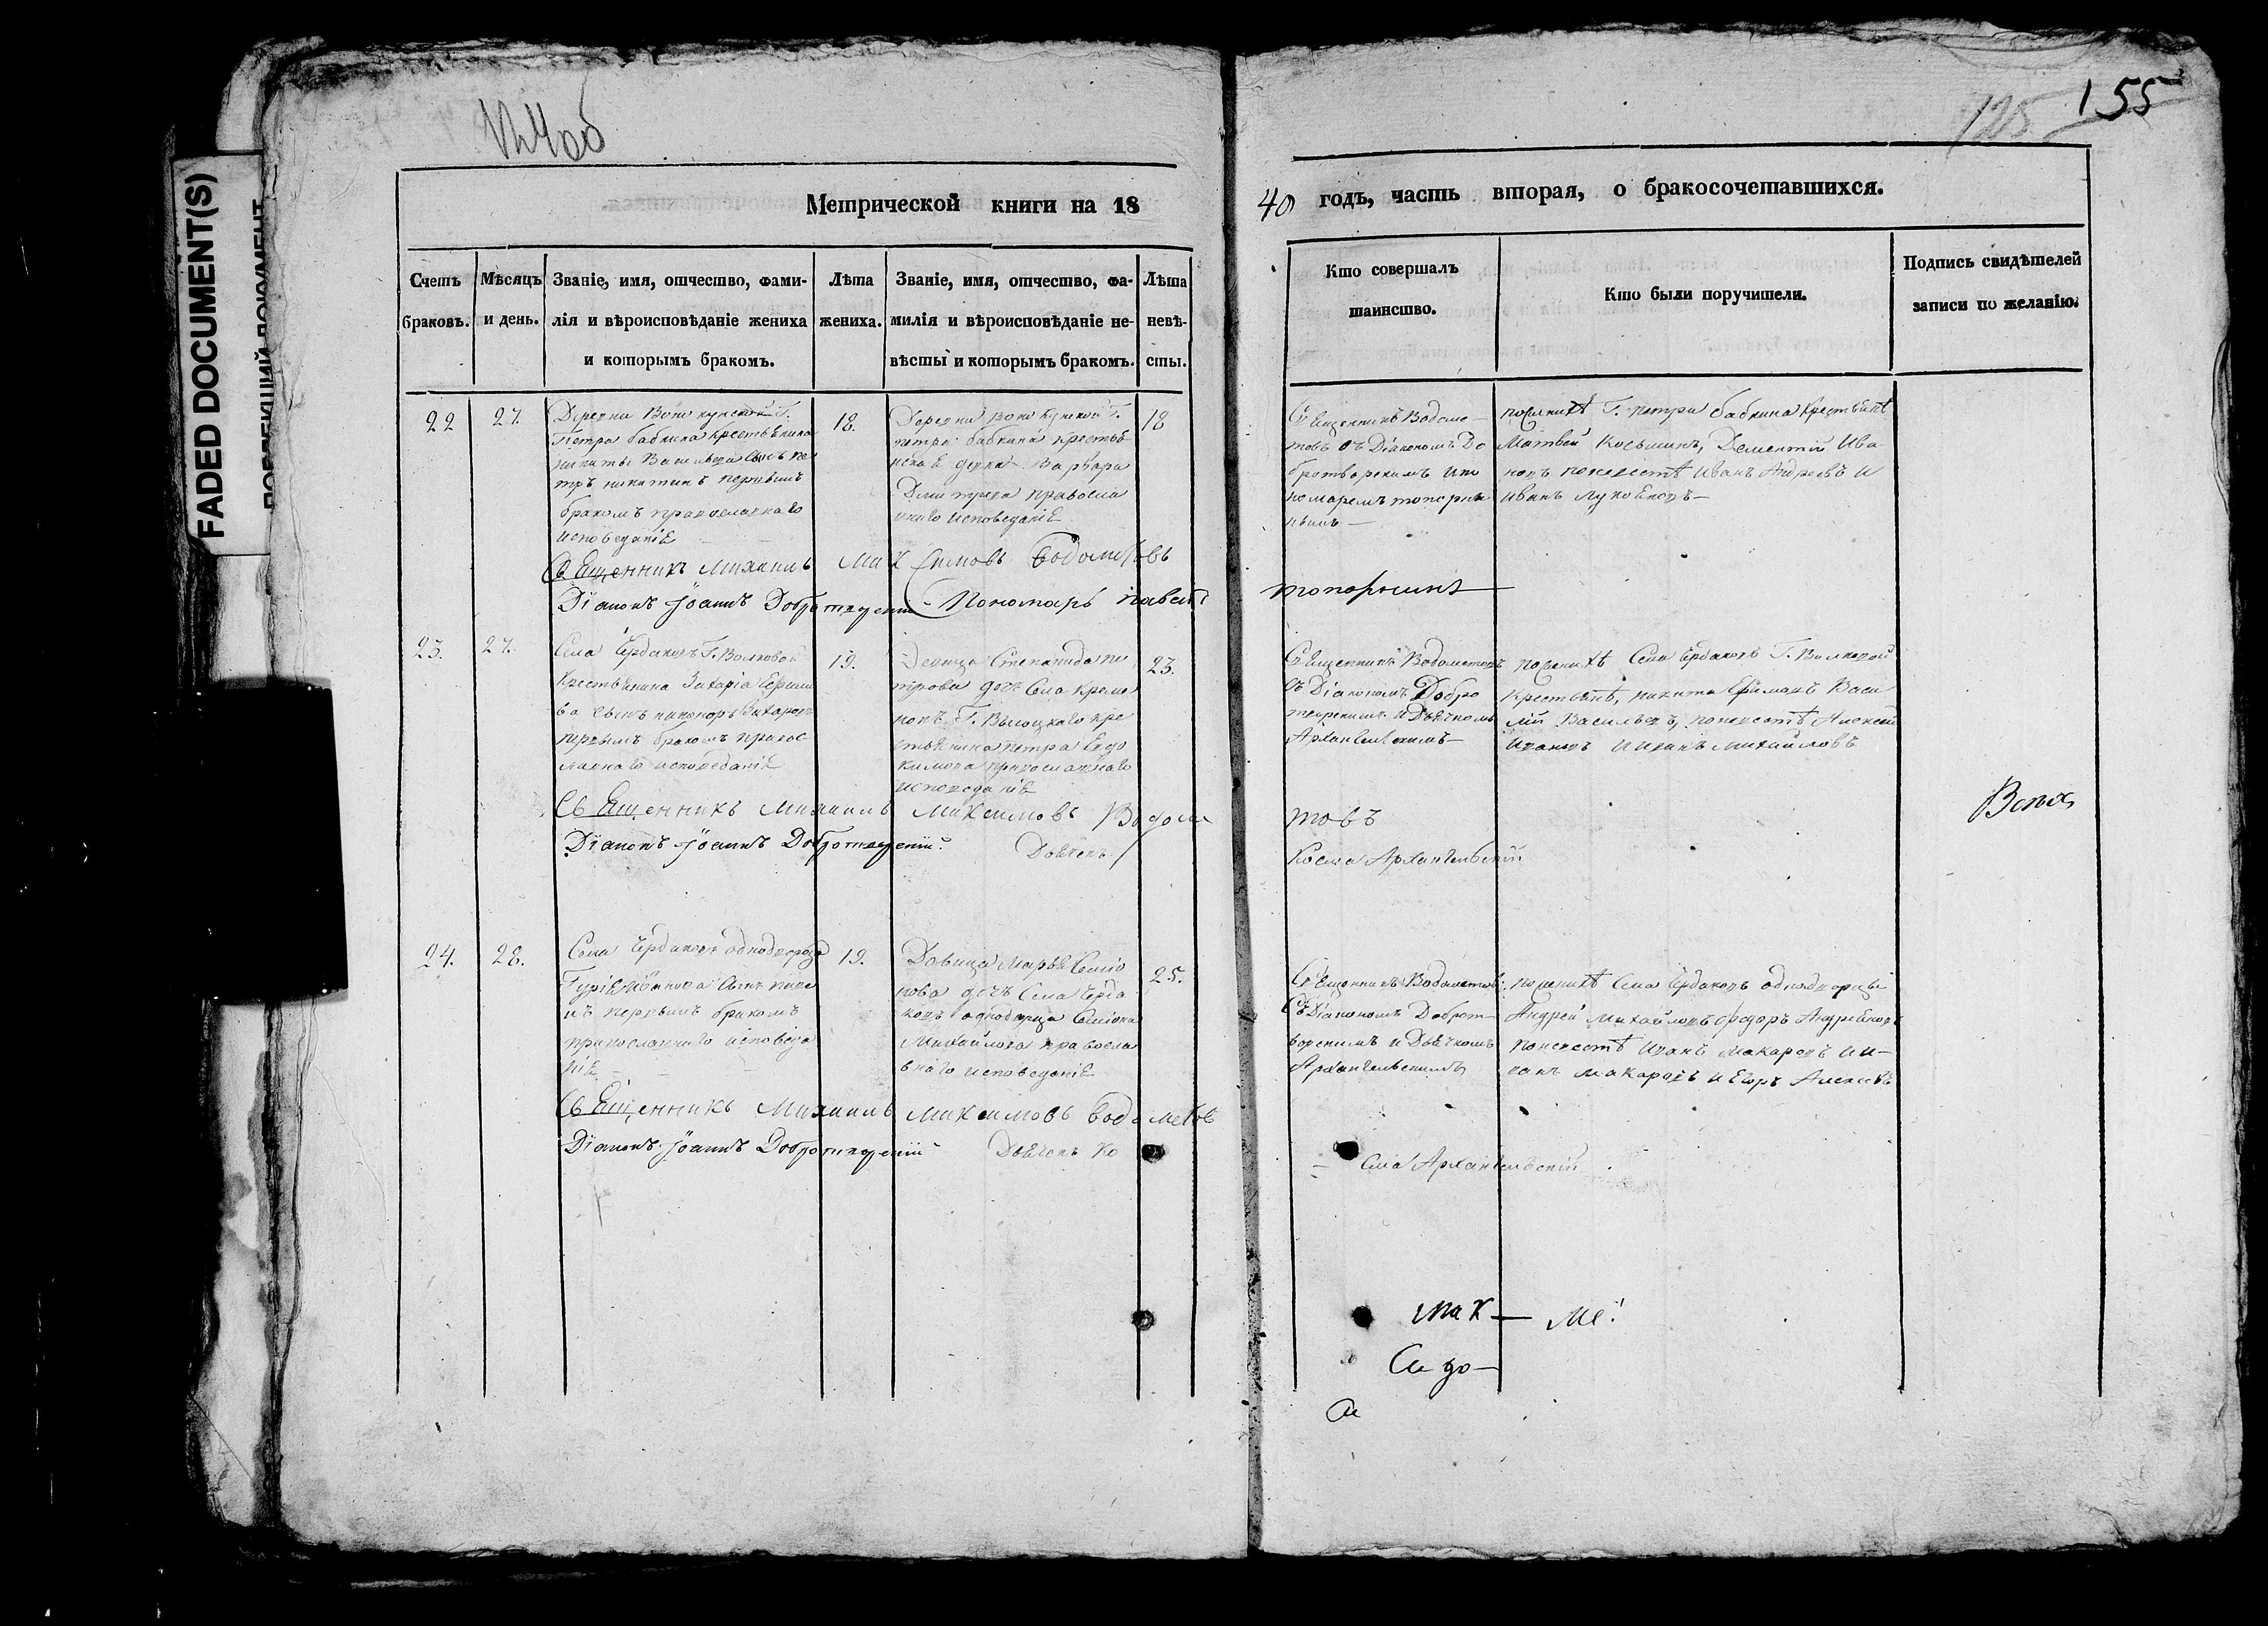 FADED DOCUMENT(S)
155
125
Метрической книги на 18
40 годъ, часть вторая, о бракосочетавшихся.
Счетъ браковъ.
Мѣсяцъ и день.
Званіе, имя, отчество, фами-
лія и вѣроисповѣданіе жениха
и которымъ бракомъ.
Лѣта
жениха.
Званіе, имя, отчество, фа-
милія и вѣроисповѣданіе не-
вѣсты и которымъ бракомъ.
Лѣта
невѣ-
сты.
Кто совершалъ
таинство.
Кто были поручители.
Подпись свидѣтелей
записи по желанію.
22
27.
Петра бабкина крестьянина
никиты Васильева сынъ пе
тръ никитинъ первымъ
бракомъ православнаго
исповеданія
18.
петра бабкина крестья
Варвара
Дмитрева правосла
внаго исповеданія
18
Священникъ Водоме
товъ съ Діакономъ До
бротворскимъ ипо
номаремъ топорни
нымъ —
поженихѣ Г. петра бабкина крестьянѣ
Матвей Косьминъ, Дементій Ива
новъ поневестѣ Иванъ Андреевъ и
Иванъ Лукояновъ —
Священникъ Михаилъ Максимовъ Водометовъ
Діаконъ Іоаннъ Добротворскій Пономарь павелъ топорнинъ
23.
27.
Села Чердаковъ Г. Волковой
Крестьянина Захарія
сынъ никоноръ Захаровъ
первымъ бракомъ правос
лавнаго исповеданія
19.
Девица Степанида пе
трова дочь Села
крестьянина петра Евдо
кимова православнаго
исповеданія
23.
Священникъ Водометовъ
съ Діакономъ Добро
творскимъ и Дьячкомъ
Архангельскимъ —
поженихѣ Села Чердаковъ Г. Волковой
Крестьянѣ, никита Ефимовъ Васи
лій Васильевъ, поневестѣ Алексей
Ивановъ и Иванъ Михайловъ
Священникъ Михаилъ Максимовъ Водометовъ
Діаконъ Іоаннъ Добротворскій Дьячекъ Косма Архангельскій
24.
28.
Села Чердаковъ однодворца
Гурія
первымъ бракомъ
православнаго исповеда
нія
19.
Девица Марья Семіо
нова дочь Села Черда
ковъ однодворца Семіона
Михайлова правосла
внаго исповеданія
25.
Священникъ Водометовъ
Съ Діакономъ Доброт
ворскимъ и Дьячкомъ
Архангельскимъ
поженихѣ Села Чердаковъ однодворцы
Андрей Михайловъ Федоръ Андреяновъ
поневестѣ Иванъ Макаровъ Ии-
ванъ Макаровъ и Егоръ Алексевъ
Священникъ Михаилъ Максимовъ Водометовъ
Діаконъ Іоаннъ Добротворскій Дьячекъ Ко
сма Архангельскій
мак — ме
си до —
си